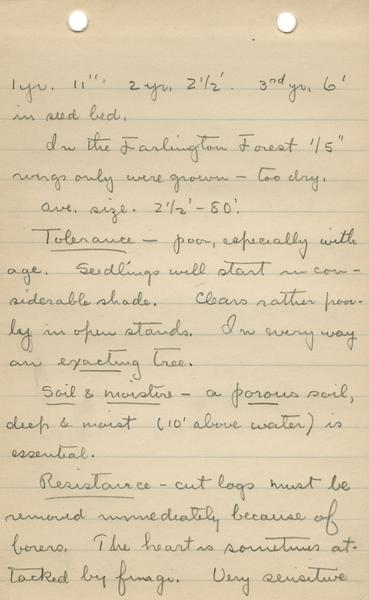 1 yr. 11". 2 yr. 2 1/2'. 3rd yr. 6'
in seed bed.
In the Farlington Forest 1/5"
rings only were grown - too dry.
ave. size. 2 1/2' - 80'.
Tolerance - poor, especially with
age. Seedlings will start in con-
siderable shade. Clears rather poor-
ly in open stands. In every way
an exacting tree.
Soil & moisture - a porous soil,
deep & moist (10' above water) is
essential.
Resistance - cut logs must be
removed immediately because of
borers. The heart is sometimes at-
tacked by fungi. Very sensitive